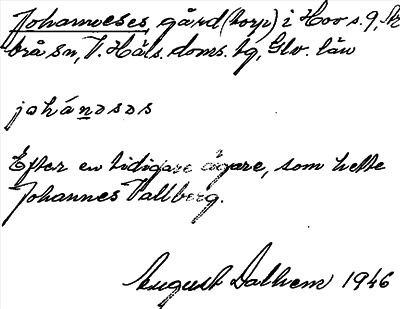 Johanneses, gård (torp) i Hov s. 9, År
brå sn, V. Häls. doms. tg, Gbl. län
johánəsəs
Efter en tidigare ägare, som hette
Johannes Vallberg.
August Dalhem 1946